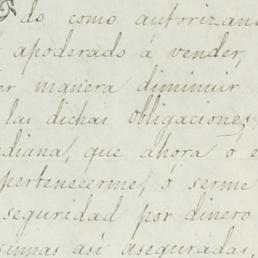 do como autorizan
apoderado á vender,
er manera diminuir
las dichas obligaciones
diana, que ahora ó e
pertenecerme, ó serme
seguridad por dinero
sumas así aseguradas,